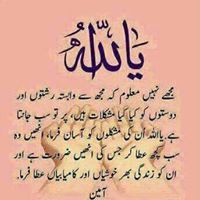 یا اللہ
مجھے نہیں معلوم کہ مجھ سے وابستہ رشتوں اور
دوستوں کو کیا کیا مشکلات ہیں، پر تو سب جانتا
ہے یا اللہ ان کی مشکلوں کو آسان فرما، انھیں وہ
سب کچھ عطا کر جس کی انھیں ضرورت ہے اور
ان کو زندگی بھر خوشیاں اور کامیابیاں عطا فرما۔
آمین